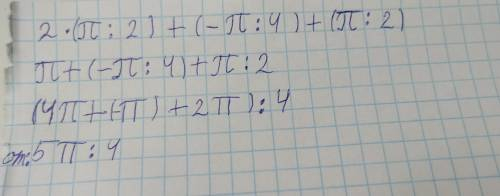 2·(π:2)+(-π:4)+(π:2)
π+(-π:4)+π:2
(4π+(-π)+2π):4
от:5π:4